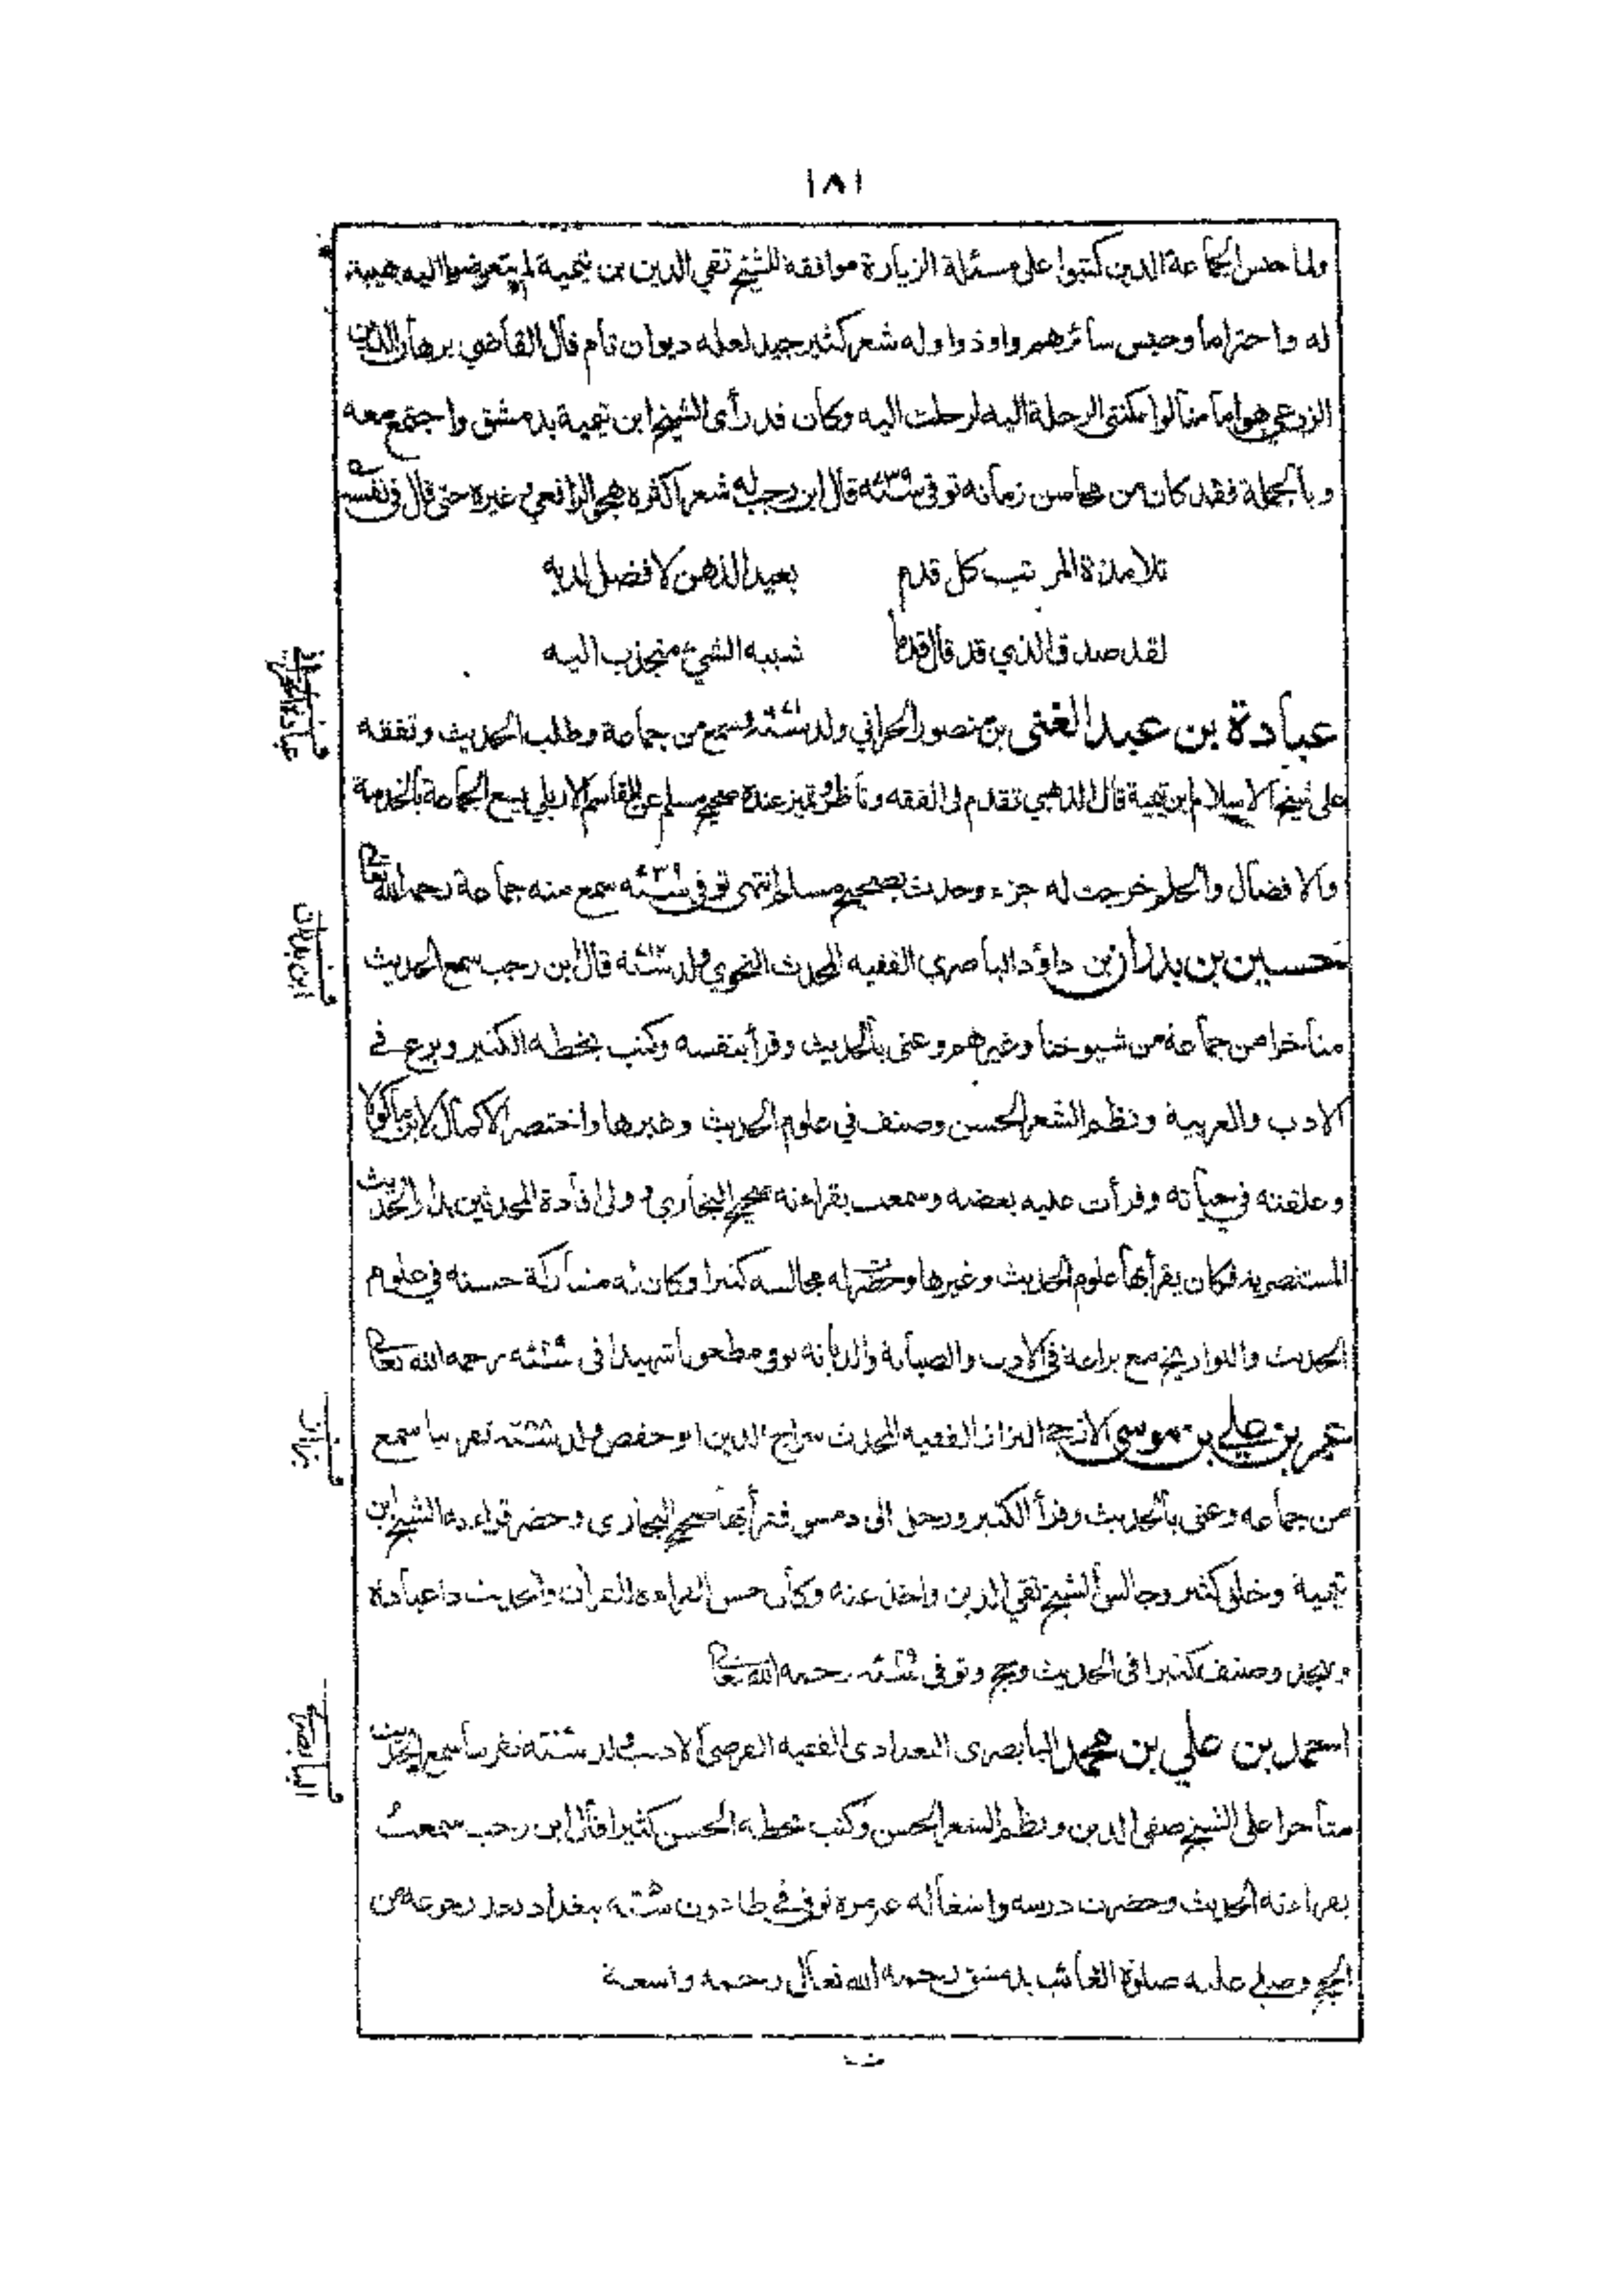 ١٨١
ولما حبس الجماعة الذين كتبوا على مسئلة الزيارة موافقة للشيخ تقي الدين بن تيمية لم يتعرضوا اليه هيبة
له واحتراما وحبس سائرهم واوذوا وله شعر كثير جيد لعله ديوان تام قال القاضي برهان الدين
الزرعي هو امامنا لو امكنتى الرحلة اليه لرحلت اليه وكان قد رأى الشيخ ابن تيمية بدمشق واجتمع معه
وبالجملة فقد كان من محاسن زمانه توفى ٧٣٩ قال ابن رجب له شعر اكثره هجو الرافعي وغيره حتى قال فى نفسه
تلامذة المرتب كل فدم بعيد الذهن لا فضل لديه
لقد صدق الذي قد قال قدما شبيه الشيء منجذب اليه
عبادة بن عبد الغنى بن منصور الحراني ولد وسمع من جماعة وطلب الحديث وتفقه
على شيخ الاسلام ابن تيمية قال الذهبي تقدم فى الفقه وناظر وتميز عنده صحيح مسلم عن القاسم الاربلي يسع الجماعة بالخدمة
والافضال والحلم خرجت له جزء وحدث بصحيح مسلم انتهى توفى ٧٣٩ سمع منه جماعة رحمه الله تعالى
حسين بن بدران بن داؤد الباصري الفقيه المحدث النحوي ولد قال ابن رجب سمع الحديث
متأخرا من جماعة من شيوخنا وغيرهم وعنى بالحديث وقرأ بنفسه وكتب بخطه الكثير وبرع فى
الادب والعربية ونظم الشعر الحسن وصنف في علوم الحديث وغيرها واختصر الاكمال لابن ماكولا
وعلقته في حياته وقرأت عليه بعضه وسمعت بقراءته صحيح البخاري وولى افادة المحدثين بدار الحديث
المستنصرية فكان يقرأ بها علوم الحديث وغيرها وحضرت له مجالسه كثيرا وكان له مشاركة حسنة في علوم
الحديث والتواريخ مع براعة فى الادب والصيانة والديانة توفى مطعونا شهيدا فى رحمه الله تعالى
عمر بن علي بن موسى الازجي البزاز الفقيه المحدث سراج الدين ابو حفص ولد تقريبا سمع
من جماعة وعنى بالحديث وقرأ الكثير ورحل الى دمشق فقرأ بها صحيح البخارى وحضر قراءته الشيخ ابن
تيمية وخلق كثير وجالس الشيخ تقي الدين واخذ عنه وكان حسن القراءة للقرآن والحديث ذا عبادة
وتهجد وصنف كثيرا فى الحديث وحج وتوفى رحمه الله تعالى
احمد بن علي بن محمد البابصرى البغدادى الفقيه الفرضي الاديب ولد تقريبا سمع الحديث
متأخرا على الشيخ صفى الدين ونظم الشعر الحسن وكتب بخطه الحسن كثيرا قال ابن رجب سمعت
بقراءته الحديث وحضرت درسه واشغاله غير مرة توفى في طاعون ببغداد بعد رجوعه من
الحج وصلى عليه صلوة الغائب بدمشق رحمه الله تعالى رحمة واسعة
ابن بدران
بزاز
البابصري